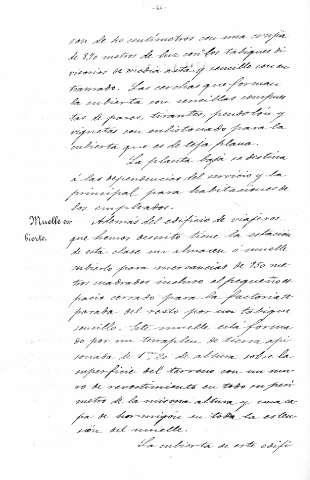 son de 40 centímetros con una crujía
de 8,90 metros de luz con los tabiques di
visorios de media asta y sencillo con en
tramado. Las cerchas que forman
la cubierta son sencillas compues
tas de pares, tirantes, pendolón y
viguetas con enlistonado para la
cubierta que es de teja plana.
La planta baja se destina
á las dependencias del servicio y la
principal para habitaciones de
los empleados.
Muelle cu
bierto.
Además del edificio de viajeros
que hemos descrito tiene la estación
de esta clase un almacen ó muelle
cubierto para mercancias de 950 me
tros cuadrados incluso el pequeño es
pacio cerrado para la factoria se
parada del resto por un tabique
sencillo. Este muelle esta forma
do por un terraplen de tierra api
sonada de 1m,20 de altura sobre la
superficie del terreno con un mu
ro de revestimiento en todo su perí
metro de la misma altura y una ca
pa de hormigón en toda la esten
sión del muelle.
La cubierta de este edifi